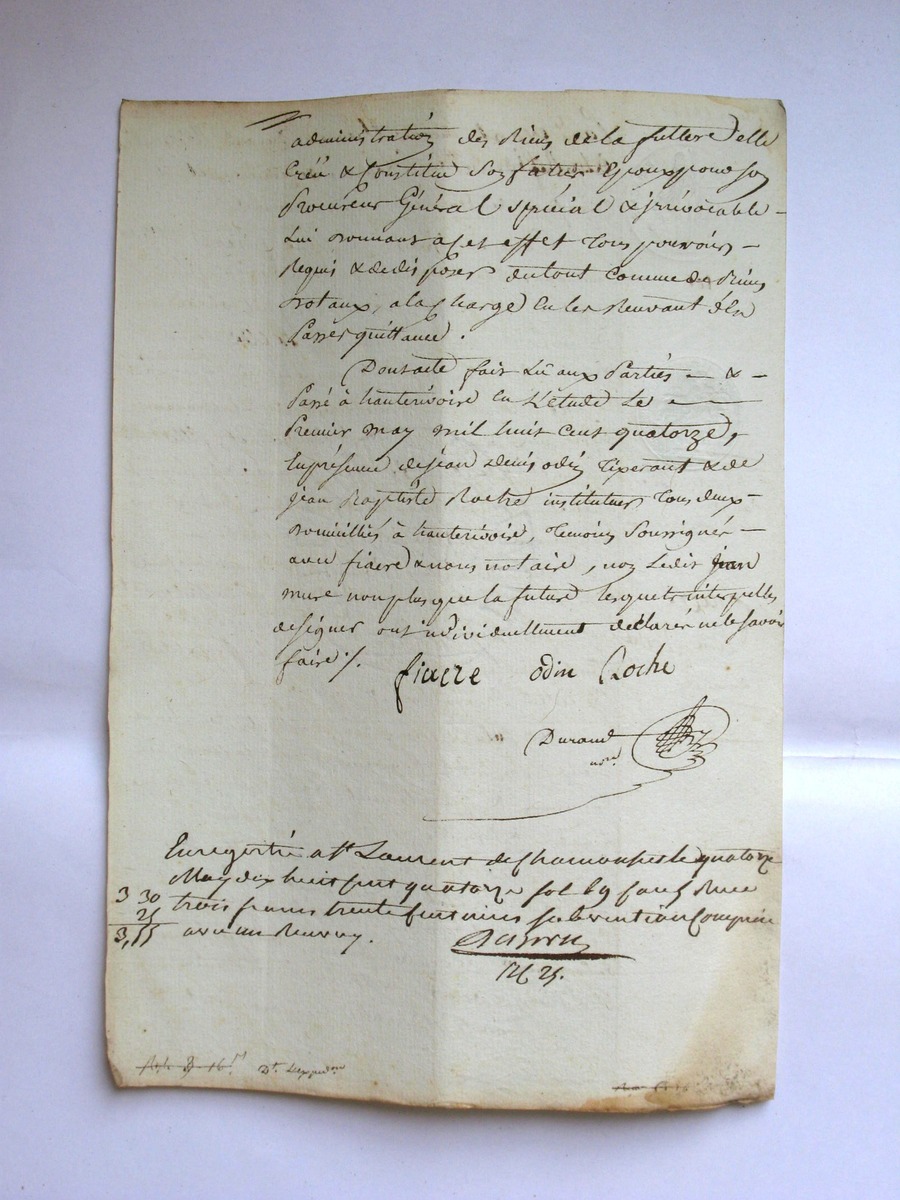 administration des biens de la future elle
Créé & Constitue Son futur Epoux pour son
Procureur Général spécial & irrévocable -
Lui donnant a cet effet Tous pouvoirs -
Requis & de disposer du tout comme de biens
dotaux, a la Charge En les Recevant d'En
Passer quittance.
Dont acte fait Lu aux Parties - & -
Passé à hauterivoire En L'etude Le -
Premier may mil huit Cent quatorze,
En présence de jean denis odin & de
jean Baptiste Roche instituteur Tous deux -
domiciliés à hauterivoire, Temoins Soussignés -
avec fiacre & nous notaire, non Ledit jean
mure non plus que la future lesquels interpellés
de signer ont individuellement déclaré ne le savoir
faire ./.
fiacre odin Roche
Durand
nore.
Enregistré a St Laurent de Chamousset le quatorze
May dix huit cent quatorze fol 69 Reçu
3 30 trois francs trente centimes subvention Comprise
25
3,55 avec un Renvoy.